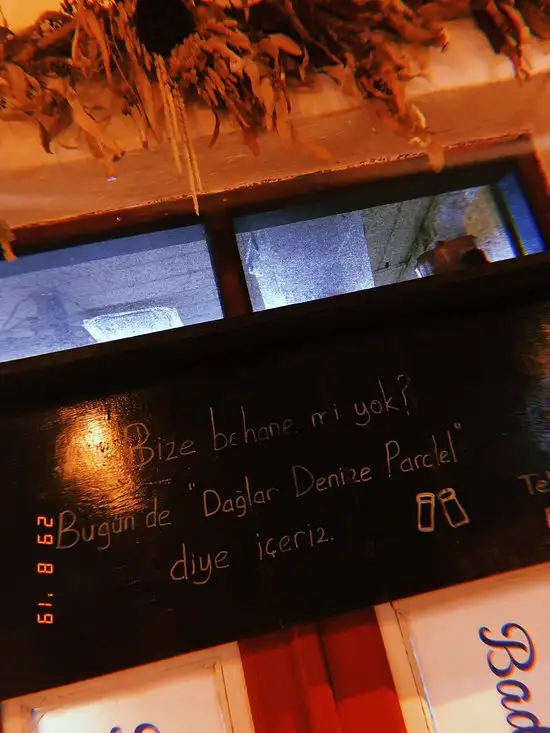 Bize bahane mi yok?
Bugün de "Dağlar Denize Paralel"
diye içeriz.
Te
29 8 '19
Bad